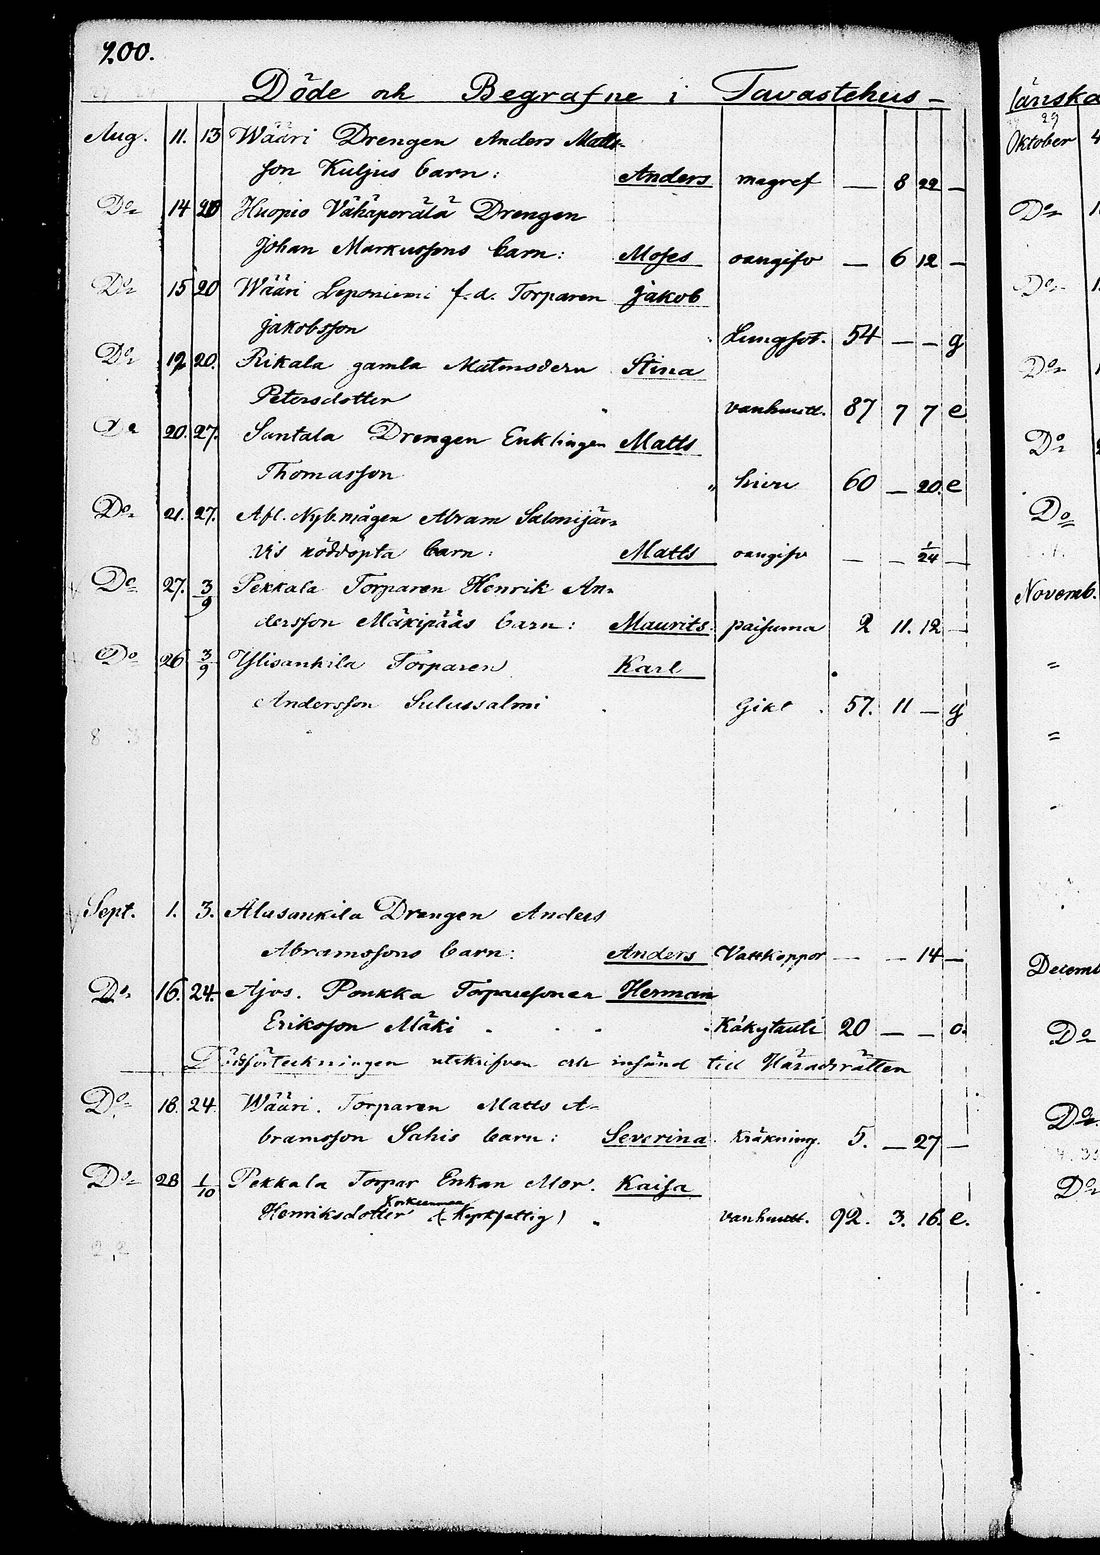 200.
Döde och Begrafne i Tavastehus
länska
Aug. 11. 13 Wääri Drengen Anders Matts-
son Kuljus barn: Anders magref — 8 22 —
Do 14 20 Huopio Vähäporälä Drengen
Johan Markussons barn: Moses oangifv — 6 12 —
Do 15 20 Wääri Leponiemi f.d. Torparen Jakob
Jakobsson Lungsot. 54 — — g
Do 19 20. Rikala gamla Matmodern Stina
Petersdotter vanhuutt. 87 7 7 e
Do 20. 27. Santala Drengen Enklingen Matts
Thomasson " 60 — 20. e
Do 21. 27. Afl. Nyb. mågen Abram Salonjär-
vis nöddöpta barn: Matts oangifv — — 1/24 —
Do 27. 3/9 Pekkala Torparen Henrik An-
dersson Mäkipääs barn: Maurits paisuma 2 11. 12 —
Do 26 3/9 Ylisankila Torparen Karl
Andersson Sulussalmi Gikt 57. 11 — g
Sept. 1. 3. Alusankila Drengen Anders
Abramssons barn: Anders Vattkoppor — — 14 —
Do 16. 24. Ajos. Ponkka Torparesonen Herman
Eriksson Mäki Käkytauti 20 — — o.
Dödsförteckningen utskrifven och insänd till Häradsrätten
Do 18. 24. Wääri. Torparen Matts A-
bramsson Sahis barn: Severina Kräkning. 5. — 27 —
Do 28 1/10 Pekkala Torpar Enkan Mor. Kaisa
Henriksdotter (Kyrkfattig) " vanhuutt. 92. 3. 16. e.
Oktober
Do
Do
Do
Do
Do
Novemb.
"
"
Decemb
Do
Do
Do